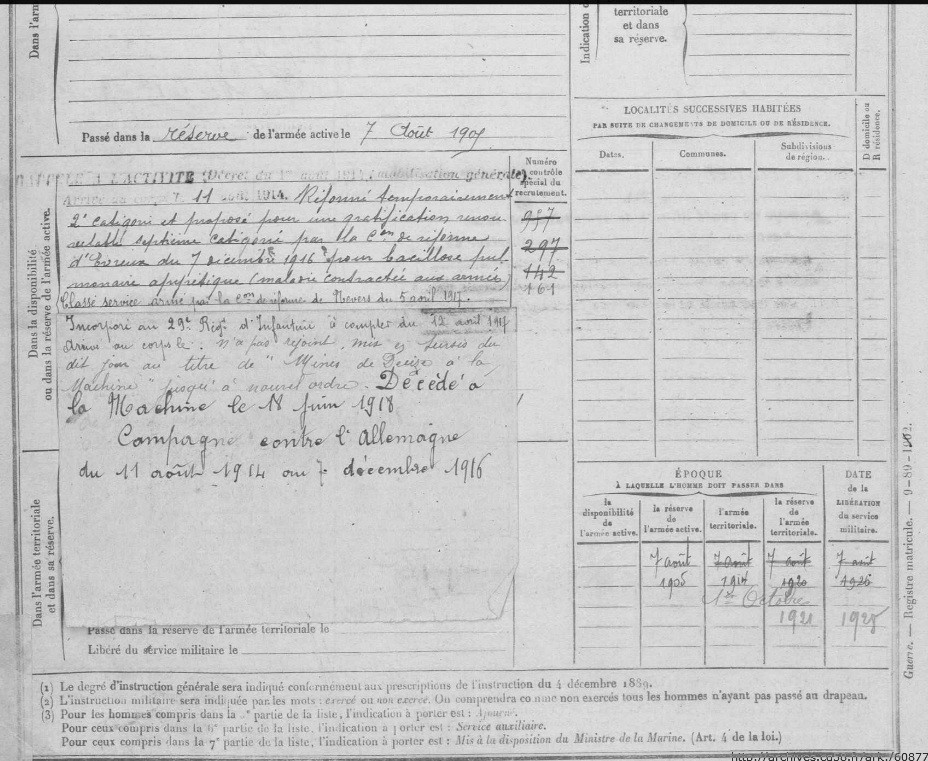 Dans l'arm
Indication d
territoriale
et dans
sa réserve.
Passé dans la réserve de l'armée active le 7 Août 1905
LOCALITÉS SUCCESSIVES HABITÉES
PAR SUITE DE CHANGEMENTS DE DOMICILE OU DE RÉSIDENCE.
Dates.
Communes.
Subdivisions
de région.
D domicile ou
R résidence.
Dans la disponibilité
ou dans la réserve de l'armée active.
Numéro
contrôle
spécial du
recrutement.
937
297
142
161
RAPPELÉ A L'ACTIVITÉ (Décret du 1er août 1914, mobilisation générale).
Arrivé au corps le 11 août 1914. Réformé temporairement
2e catégorie et proposé pour une gratification renou-
velable septième catégorie par la Con de réforme
d'Evreux du 7 décembre 1916 pour bacillose pul-
monaire apyrétique (maladie contractée aux armées)
Classé service armé par la Con de réforme de Nevers du 5 avril 1917.
Incorporé au 29e Régt d'Infanterie à compter du 12 avril 1917
Arrivé au corps le. n'a pas rejoint, mis en sursis du
dit jour au titre de "Mines de Decize à la
Machine" jusqu'à nouvel ordre. Décédé à
la Machine le 18 juin 1918
Campagne contre l'Allemagne
du 11 août 1914 au 7 décembre 1916
ÉPOQUE
À LAQUELLE L'HOMME DOIT PASSER DANS
DATE
de la
LIBÉRATION
du service
militaire.
la
disponibilité
de
l'armée active.
la réserve
de
l'armée active.
l'armée
territoriale.
la réserve
de
l'armée
territoriale.
7 août 7 août 7 août 7 août
1905 1914 1920 1926
1er Octobre
1921 1928
Dans l'armée territoriale
et dans sa réserve.
Passé dans la réserve de l'armée territoriale le
Libéré du service militaire le
Guerre. — Registre matricule. — 9-89-1202.
(1) Le degré d'instruction générale sera indiqué conformément aux prescriptions de l'instruction du 4 décembre 1889.
(2) L'instruction militaire sera indiquée par les mots : exercé ou non exercé. On comprendra comme non exercés tous les hommes n'ayant pas passé au drapeau.
(3) Pour les hommes compris dans la partie de la liste, l'indication à porter est : Ajourné.
Pour ceux compris dans la partie de la liste, l'indication à porter est : Service auxiliaire.
Pour ceux compris dans la 7e partie de la liste, l'indication à porter est : Mis à la disposition du Ministre de la Marine. (Art. 4 de la loi.)
http://archives.cg58.fr/ark:/60877